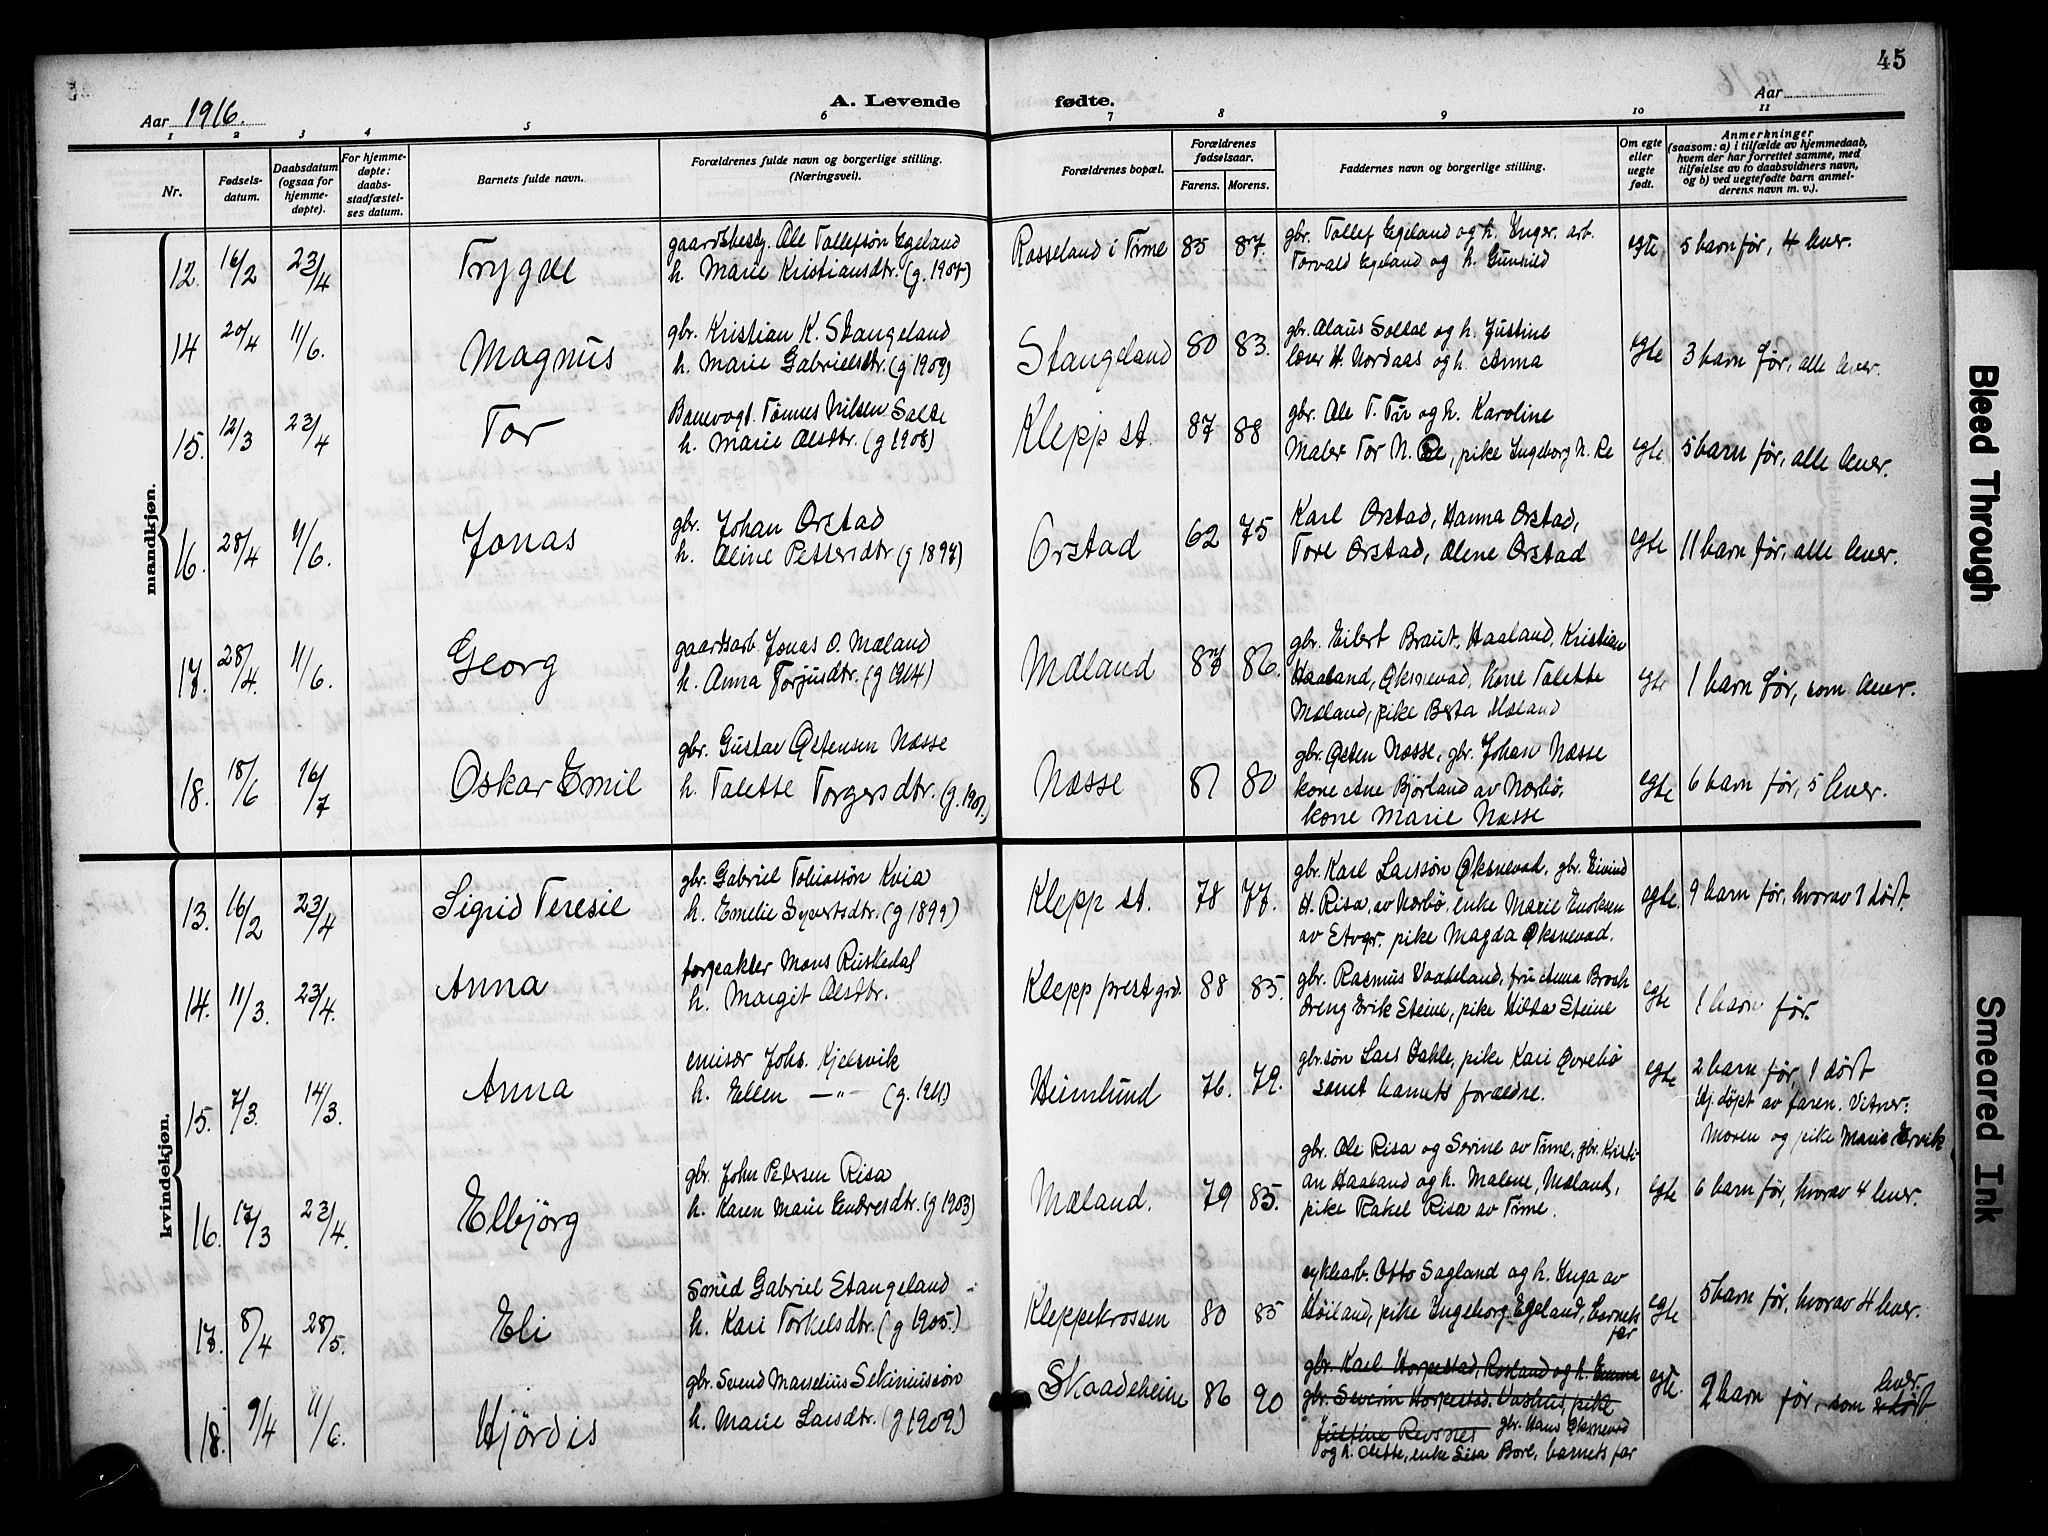 45
Aar 1916.
A. Levende fødte.
Aar
1 2 3 4 5 6 7 8 9 10 11
Nr.
Fødsels-
datum.
Daabsdatum
(ogsaa for
hjemme-
døpte).
For hjemme-
døpte:
daabs-
stadfæstel-
ses datum.
Barnets fulde navn.
Forældrenes fulde navn og borgerlige stilling.
(Næringsvei).
Forældrenes bopæl.
Forældrenes
fødselsaar.
Farens. Morens.
Faddernes navn og borgerlige stilling.
Om egte
eller
uegte
født.
Anmerkninger
(saasom: a) i tilfælde av hjemmedaab,
hvem der har forrettet samme, med
tilføielse av to daabsvidners navn,
og b) ved uegtefødte barn anmel-
derens navn m. v.).
mandkjøn.
12. 16/2 23/4 Trygve
gaardbest. Ole Tollefsøn Egeland
h. Marie Kristiansdtr. (g. 1907)
Rosseland i Time 85 87.
gbr. Tollef Egeland og h. Inger. arb.
Torvald Egeland og h. Gunhild
egte 5 barn før, 4 lever.
14 20/4 11/6. Magnus
gbr. Kristian K. Stangeland
h. Marie Gabrielsdtr. (g 1909)
Stangeland 80 83.
gbr. Olaus Soldal og h. Justine
lærer H. Nordaas og h. Anna
egte 3 barn før, alle lever.
15. 12/3 23/4 Tor
Banevogt. Tønnes Nilsen Salte
h. Marie Olsdtr. (g 1908)
Klepp st. 87 88
gbr. Ole T. Tu og h. Karoline
Maler Tor N. Re, pike Ingeborg N. Re
egte 5 barn før, alle lever.
16. 28/4 11/6. Jonas
gbr. Johan Orstad
h. Oline Pettersdtr (g 1897)
Orstad 62 75
Karl Orstad, Hanna Orstad,
Tore Orstad, Olene Orstad
egte 11 barn før, alle lever.
17. 28/4. 11/6. Georg
gaardsarb. Jonas O. Mæland
h. Anna Torjusdtr. (g 1914)
Mæland 87 86.
gbr. Eilert Braut, Haaland, Kristian
Haaland, Øksnevad, kone Talette
Mæland, pike Berta Mæland
egte 1 barn før, som lever.
18. 18/6 16/7 Oskar Emil
gbr. Gustav Østensen Næsse
h. Talette Torgersdtr. (g. 1907.)
Næsse 81 80
gbr. Østen Næsse, gbr. Johan Næsse
kone Ane Bjørland av Nærbø,
kone Marie Næsse
egte 6 barn før, 5 lever.
kvindekjøn.
13. 16/2 23/4 Sigrid Teresie
gbr. Gabriel Tobiassøn Kvia
h. Emelie Syvertsdtr. (g 1899)
Klepp st. 78 77.
gbr. Karl Larssøn Øksnevad, gbr. Eivind
H. Risa, av Nærbø, enke Marie Enoksen
av Stvgr. pike Magda Øksnevad.
egte. 9 barn før, hvorav 1 død.
14. 11/3. 23/4. Anna
forpakter Mons Ruskedal
h. Margit Olsdtr.
Klepp prestgrd. 88 85.
gbr. Rasmus Vaateland, fru Anna Broch
dreng Erik Steine, pike Hilda Steine
egte 1 barn før.
15. 7/3. 14/3. Anna
emisær Johs. Kjelsvik
h. Ellen —"— (g. 1911)
Heimlund 76. 79.
gbr.søn Lars Dahle, pike Kari Øvrebø
samt barnets forældre.
egte 2 barn før, 1 dødt
Hj.døpt av faren. Vitner:
Moren og pike Marie Ervik
16. 17/3 23/4. Elbjörg
gbr. John Petersen Risa
h. Karen Marie Endresdtr. (g 1903)
Mæland. 79 85.
gbr. Ole Risa og Serine av Time, gbr. Kristi-
an Haaland og h. Malene, Mæland,
pike Rakel Risa av Time.
egte 6 barn før, hvorav 4 lever.
17. 8/4 28/5. Eli
Smed Gabriel Stangeland
h. Kari Torkelsdtr. (g 1905.)
Kleppekrossen 80 85
cyklearb. Otto Sagland og h. Inga av
Høiland, pike Ingeborg Egeland, barnets
far
egte 5 barn før, hvorav 4 lever.
18. 9/4 11/6. Hjördis
gbr. Svend Marselius Sekiniussøn
h. Marie Larsdtr. (g 1909)
Skaadeheien 86 90
gbr. Karl Horpestad, Rosland og h. Emma
gbr. Severin Horpestad, Vashus, pike
Justine Revsnes gbr. Hans Øksnevad
og h. Olette, enke Lisa Bore, barnets far
egte. 2 barn før, som er dødt
lever.
Bleed Through
Smeared Ink